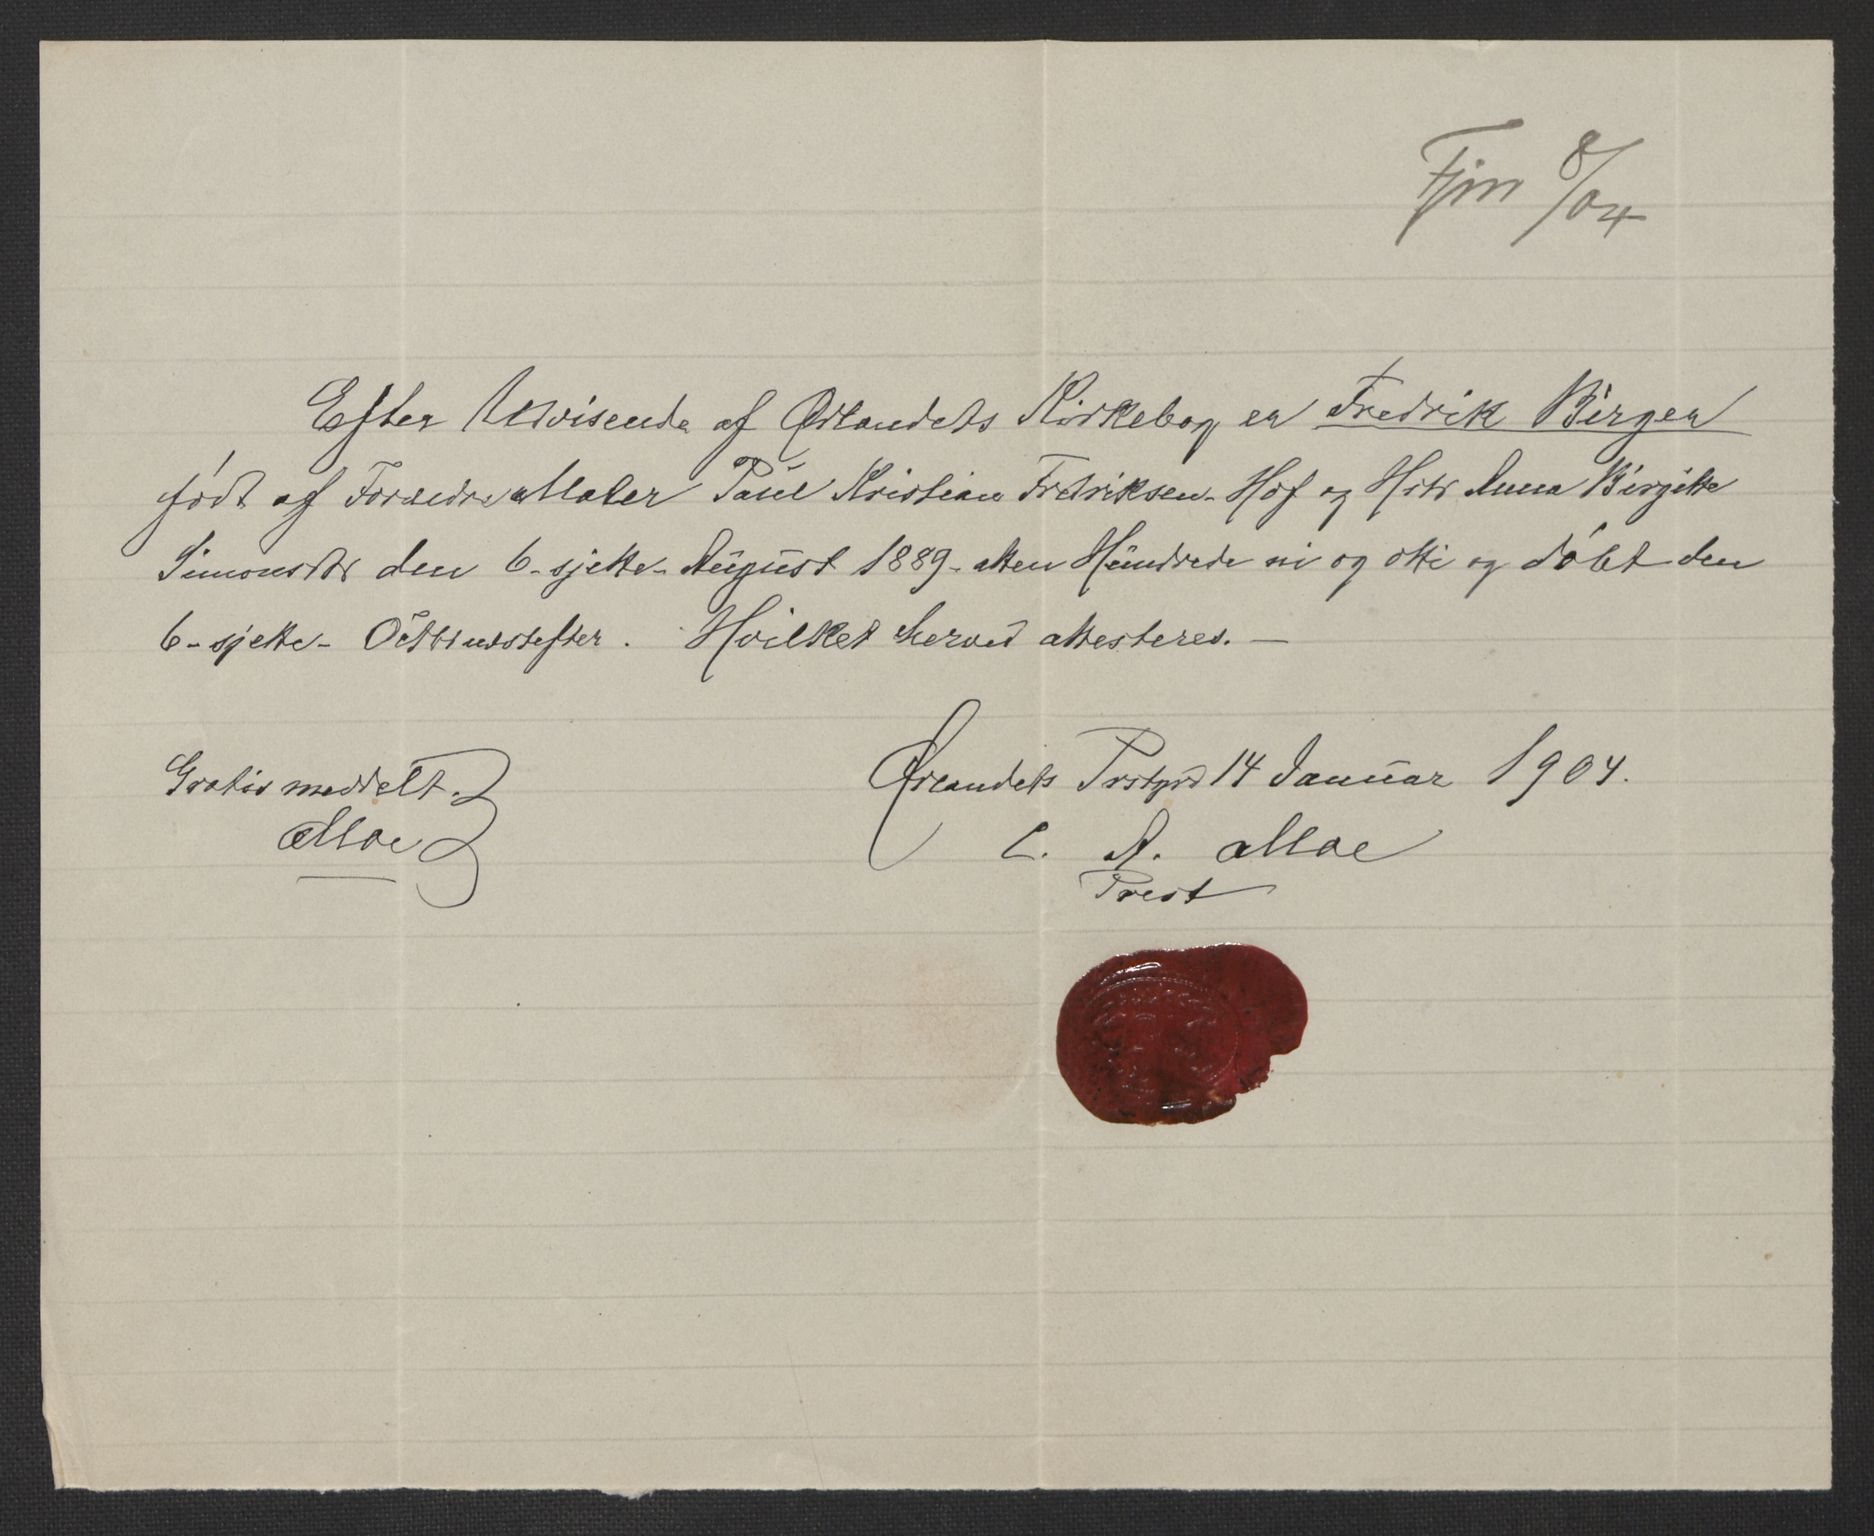 Fjm 8/04
Efter Udvisende af Ørlandets Kirkebog er Fredrik Birger
født af Forældre Maler Paul Kristian Fredriksen Hof og Hstr Anna Birgitte
Simonsdtr den 6 - sjette - August 1889 - atten Hundrede ni og otti og døbt den
6 - sjette - Oktbr næstefter. Hvilket herved attesteres. —
Ørlandets Prstgrd 14 Januar 1904.
Gratis meddelt.
C. A. Moe
Moe
Prest